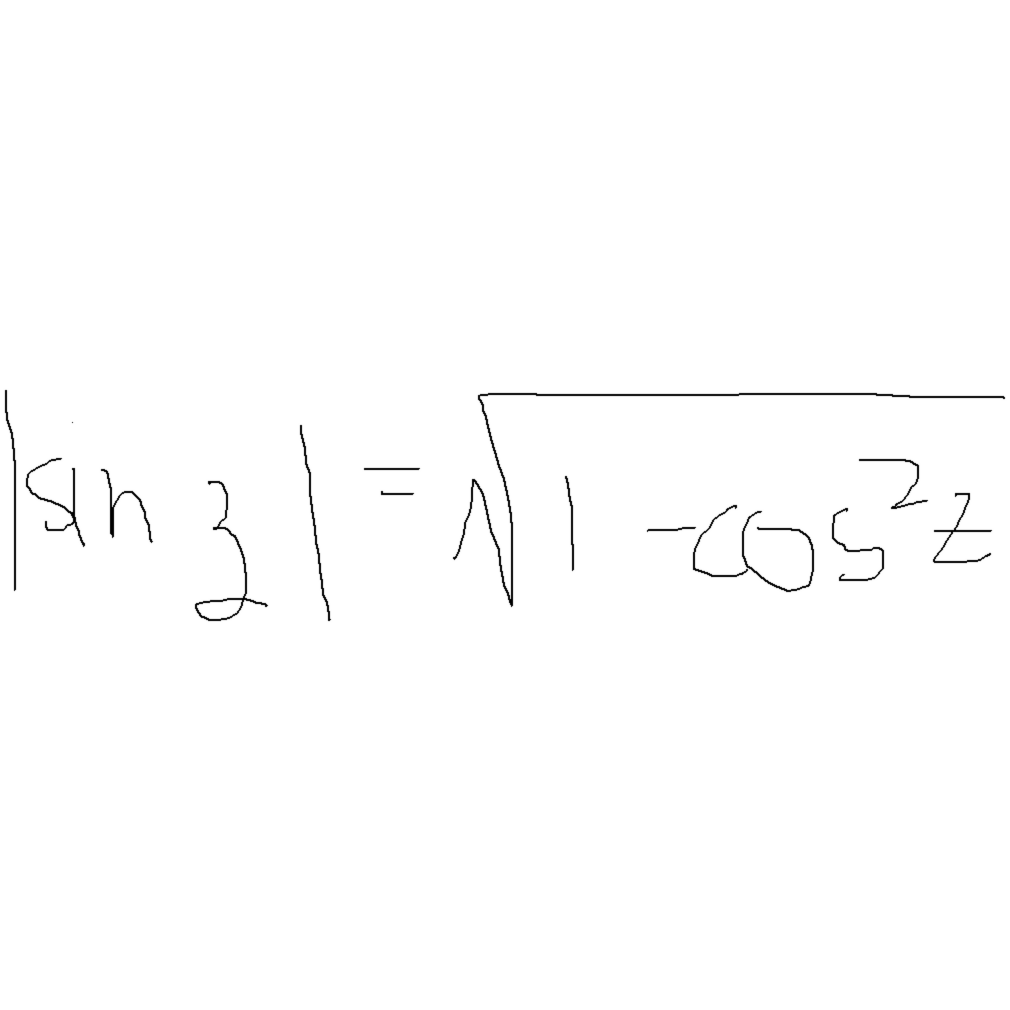 |sin z| = √(1 - cos²z)